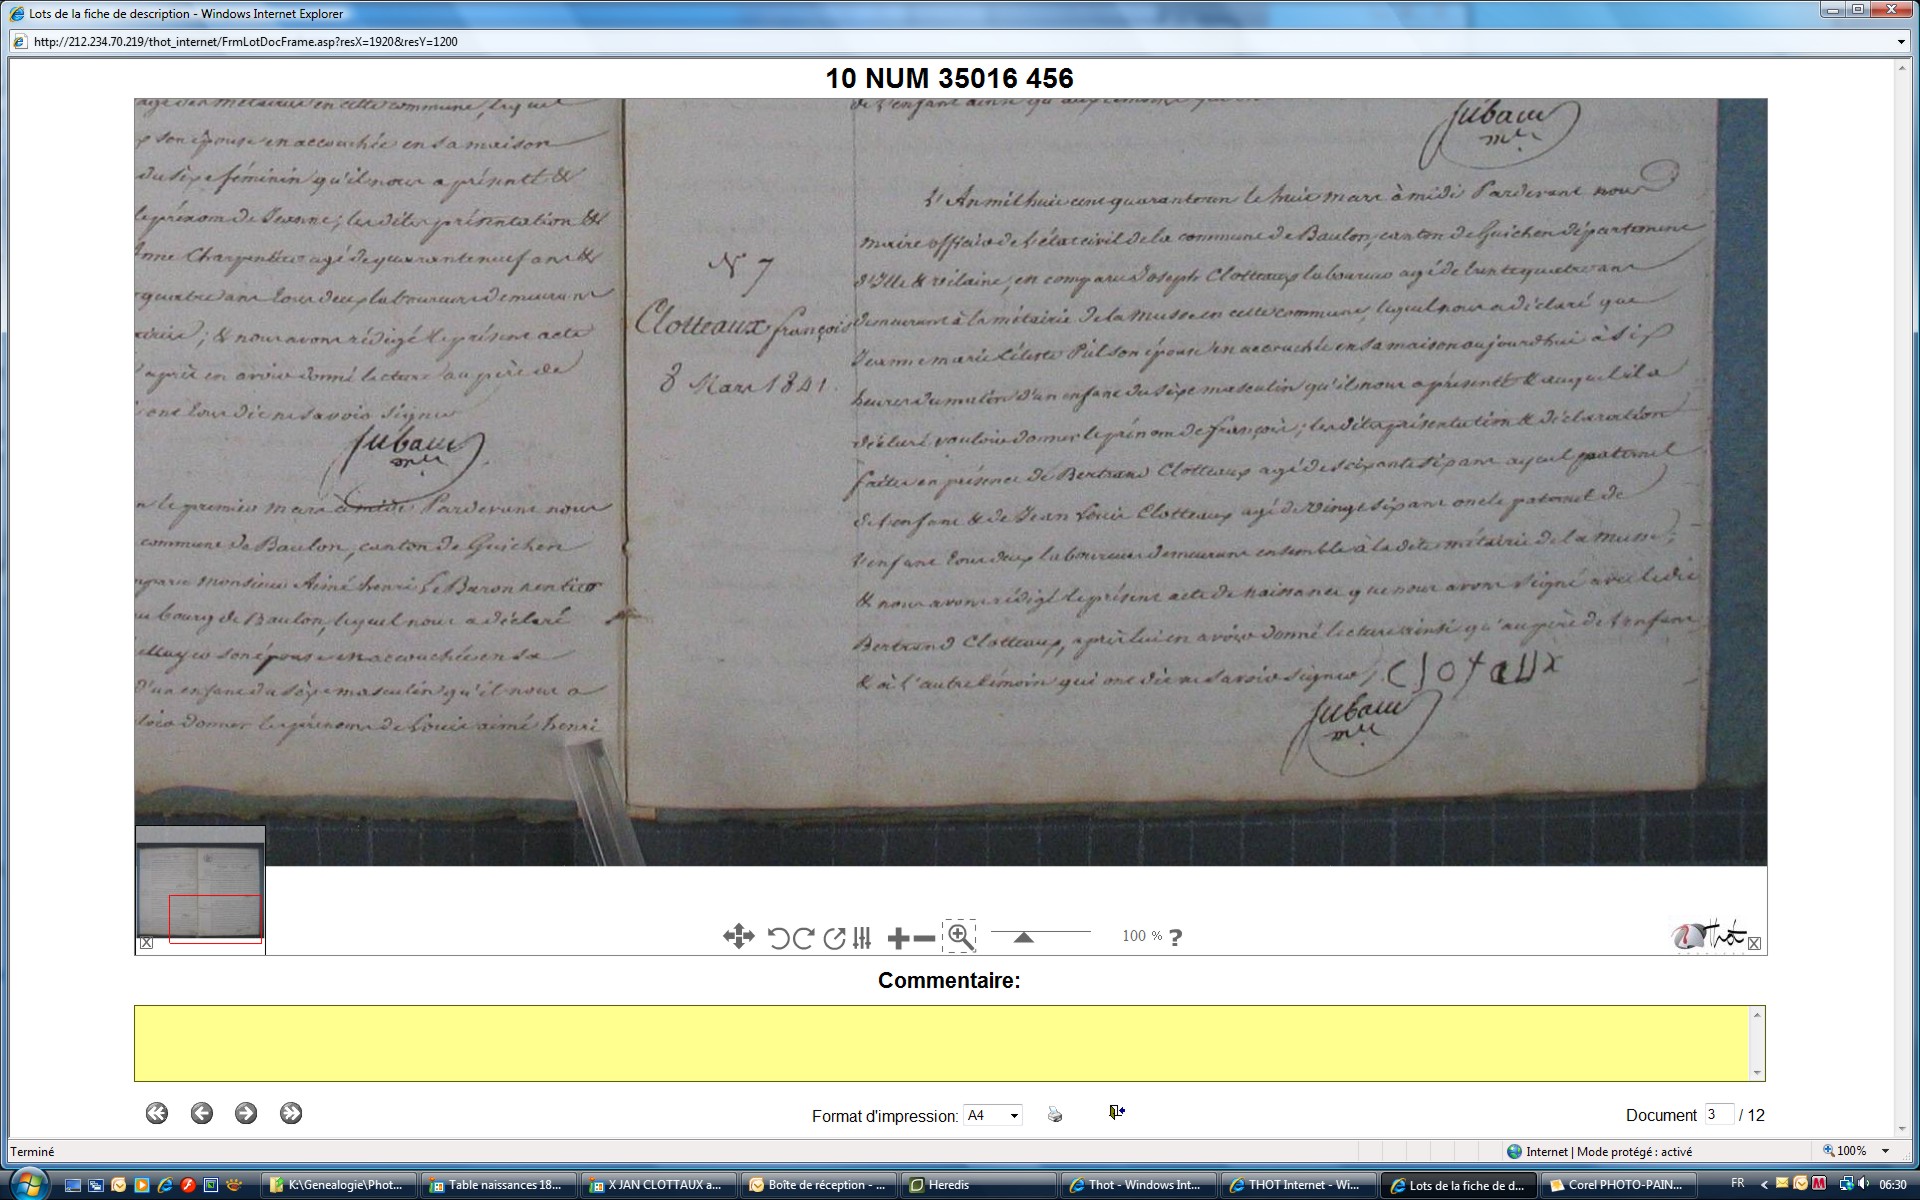 Lots de la fiche de description - Windows Internet Explorer
http://212.234.70.219/thot_internet/FrmLotDocFrame.asp?resX=1920&resY=1200
10 NUM 35016 456
son épouse en accouchée en sa maison
du sèxe féminin qu'il nous a présenté &
le prénom de Jeanne; les dites présentation &
Anne Charpentier agé de quarante neuf ans &
quatre ans tous deux laboureurs demeurans
; & nous avons rédigé le présent acte
après en avoir donné lecture au père de
ont tous dit ne savoir signer
Jubaux
mre
le premier mars à midi Pardevant nous
commune de Baulon, canton de Guichen
monsieur Aimé henri Le Baron rentier
au bourg de Baulon, lequel nous a déclaré
son épouse en accouchée en sa
d'un enfant du sèxe masculin qu'il nous a
donner les prénoms de Louis aimé henri
N° 7
Clotteaux françois
8 Mars 1841.
Jubaux
mre
L'An mil huit cent quarante un le huit mars à midi Pardevant nous
maire officier de l'état civil de la commune de Baulon, canton de Guichen département
d'Ille & vilaine, en comparu Joseph Clotteaux laboureur agé de trente quatre ans
demeurant à la métairie de la Musse en cette commune, lequel nous a déclaré que
Jeanne marie Céleste Piel son épouse en accouchée en sa maison aujourd'hui à six
heures du matin d'un enfant du sèxe masculin qu'il nous a présenté & auquel il a
déclaré vouloir donner le prénom de françois; les dites présentation & déclaration
faites en présence de Bertrand Clotteaux agé de soixante six ans ayeul paternel
de l'enfant & de Jean Louis Clotteaux agé de vingt six ans oncle paternel de
l'enfant tous deux laboureurs demeurans ensemble à la dite métairie de la Musse;
& nous avons rédigé le présent acte de naissance que nous avons signé avec le dit
Bertrand Clotteaux, après lui en avoir donné lecture ainsi qu'au père de l'enfant
& à l'autre témoin qui ont dit ne savoir signer Clotaux
Jubaux
mre
100 % ?
Thot
Commentaire:
Format d'impression: A4
Document 3 / 12
Terminé
Internet | Mode protégé : activé
100%
K:\Genealogie\Phot...
Table naissances 18...
X JAN CLOTTAUX a...
Boîte de réception - ...
Heredis
Thot - Windows Int...
THOT Internet - Wi...
Lots de la fiche de d...
Corel PHOTO-PAIN...
FR
06:30